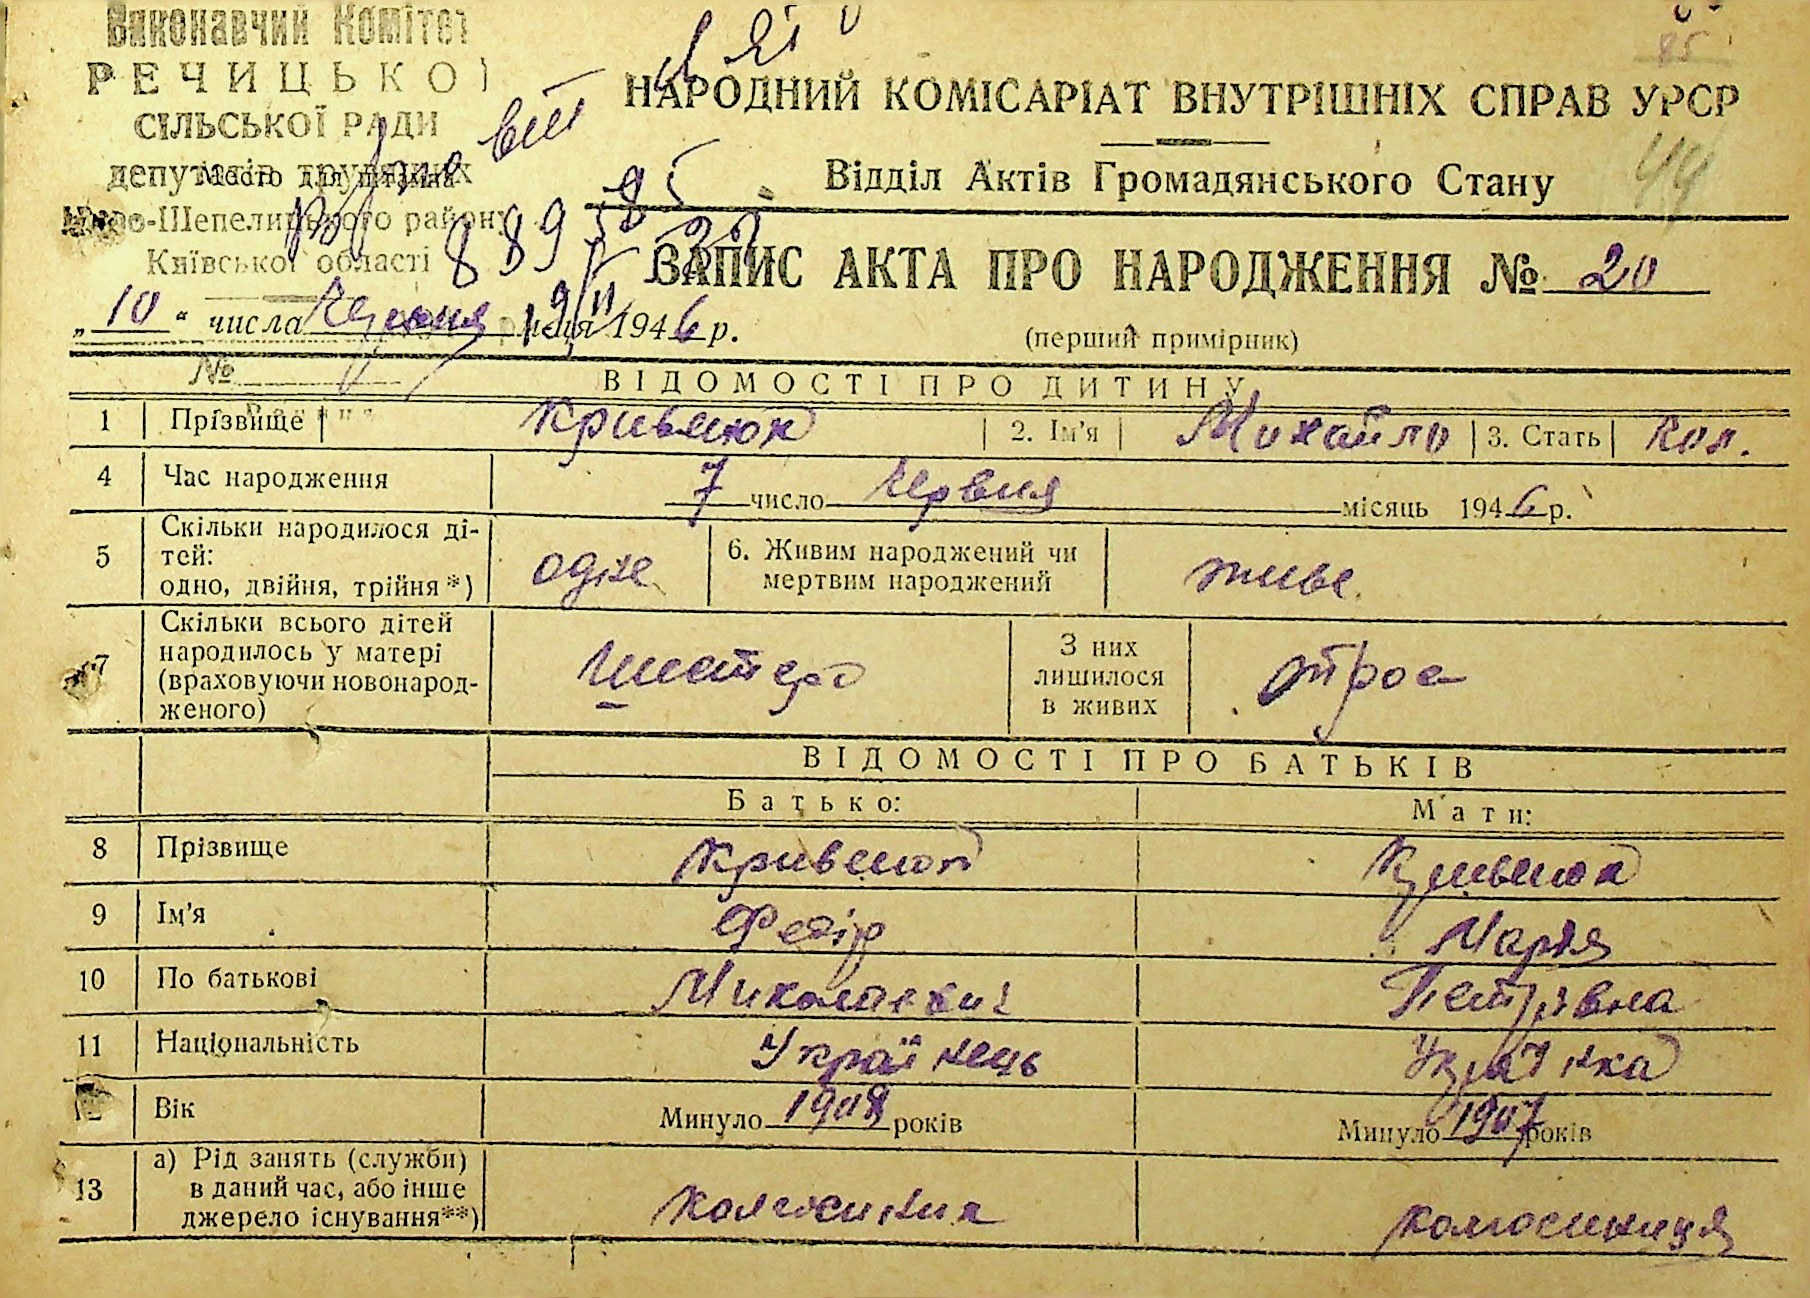 Виконавчий Комітет
РЕЧИЦЬКОЇ
СІЛЬСЬКОЇ РАДИ
депутатів трудящих
Місце для штампа
Ново-Шепелицького району
Київської області
№
889
85
44
НАРОДНИЙ КОМІСАРІАТ ВНУТРІШНІХ СПРАВ УРСР
Відділ Актів Громадянського Стану
ЗАПИС АКТА ПРО НАРОДЖЕННЯ № 20
„10“ числа Червня місяця 1946 р.
(перший примірник)
ВІДОМОСТІ ПРО ДИТИНУ
1 Прізвище Кривенюк 2. Ім’я Михайло 3. Стать
4 Час народження 7 число червня місяць 1946 р.
5 Скільки народилося ді-
тей:
одно, двійня, трійня *) одне
6. Живим народжений чи
мертвим народжений живе
7 Скільки всього дітей
народилось у матері
(враховуючи новонарод-
женого) шестеро
З них
лишилося
в живих трое
ВІДОМОСТІ ПРО БАТЬКІВ
Батько: Мати:
8 Прізвище Кривенюк Кривенюк
9 Ім’я Федір Марія
10 По батькові Миколаєвич Петрівна
11 Національність Українець Українка
12 Вік Минуло 1908 років Минуло 1907 років
13 а) Рід занять (служби)
в даний час, або інше
джерело існування**) колгосник колгосниця